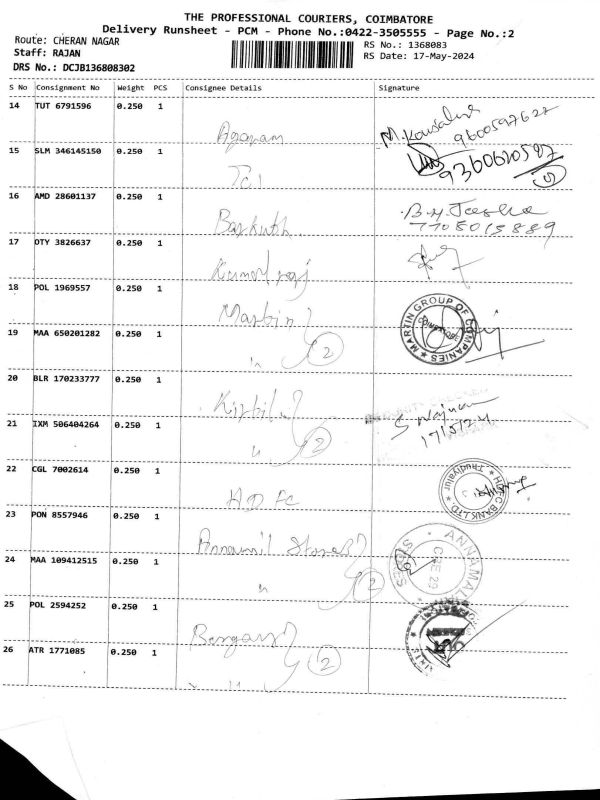 THE PROFESSIONAL COURIERS, COIMBATORE
Delivery Runsheet - PCM - Phone No.:0422-3505555 - Page No.:2
Route: CHERAN NAGAR
Staff: RAJAN
DRS No.: DCJB136808302
RS No.: 1368083
RS Date: 17-May-2024
S No Consignment No Weight PCS Consignee Details Signature
14 TUT 6791596 0.250 1 Agaram M. Kousalya 9600597627
15 SLM 346145150 0.250 1 Tci 9360610587
16 AMD 28601137 0.250 1 7708015889
17 OTY 3826637 0.250 1
18 POL 1969557 0.250 1 Martin MARTIN GROUP OF COMPANIES COIMBATORE
19 MAA 650201282 0.250 1 2
20 BLR 170233777 0.250 1
21 IXM 506404264 0.250 1 2 17/5/24
22 CGL 7002614 0.250 1 HDFC HDFC BANK LTD Thudiyalur
23 PON 8557946 0.250 1 Stores
24 MAA 109412515 0.250 1 2
25 POL 2594252 0.250 1
26 ATR 1771085 0.250 1 2